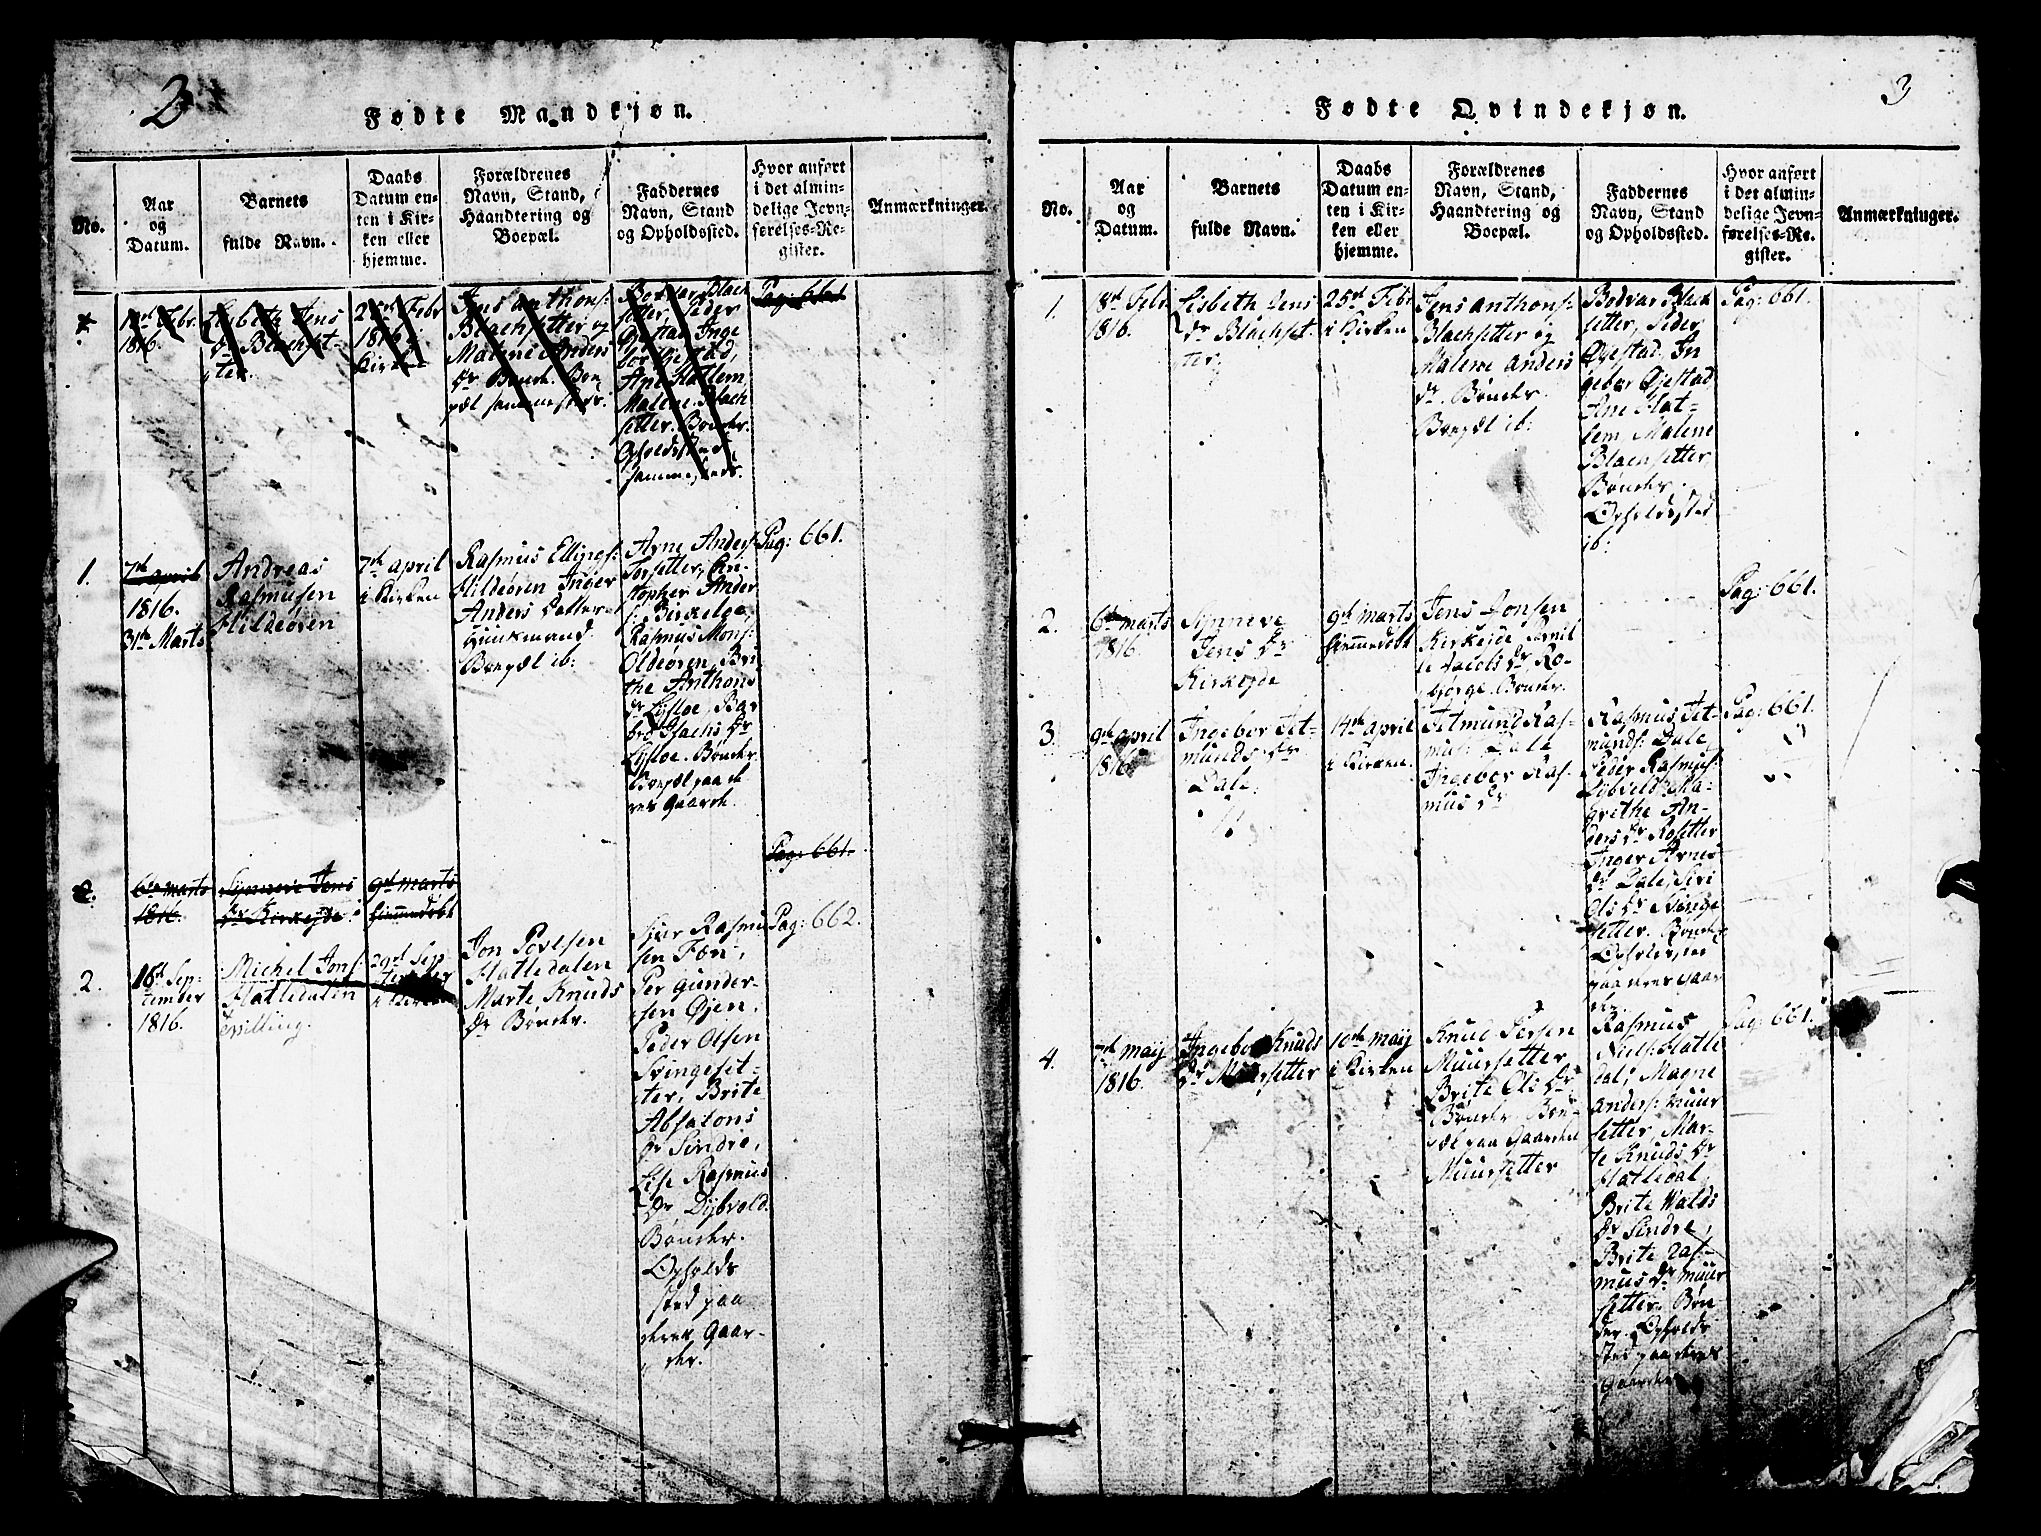 2
Fødte Mandkjøn.
No.
Aar
og
Datum.
Barnets
fulde Navn.
Daabs
Datum en-
ten i Kir-
ken eller
hjemme.
Forældrenes
Navn, Stand,
Haandtering og
Boepæl.
Faddernes
Navn, Stand
og Opholdssted.
Hvor anført
i det almin-
delige Jevn-
førelses-Re-
gister.
Anmærkninger.
Febr.
1816.
Lisbeth Jens
Dr Blachset-
ter.
25de Febr
1816 i
Kirken
Jens Anthons:
Blachsetter og
Malene Anders
Dr. Bønder. Boe
pæl sammesteds.
Bodvar Blach
setter, Peder
Øjestad, Inge
bor Øjestad,
Ane Hatlem,
Malene Blach
setter. Bønder.
Opholdssted
sammesteds.
Pag: 661
1.
7de april
1816.
31te Marts
Andreas
Rasmusen
Hildeøren
7de april
i Kirken
Rasmus Ellings:
Hildeøren Inger
Anders Datter
Huusmand
Boepæl ib:
Arne Anders:
Torsetter,
Anders
Birkeloe,
Rasmus Mons:
Oldeøren, Bri
the Anthons
Dr Lofloe,
Dr
Lofloe. Bønder
Boepæl paa de
res Gaarde.
Pag: 661.
2.
6te Marts
1816.
Synneve Jens
Dr Kirkeyde
9de Marts
hjemmedøbt
Pag: 661.
2.
16de Sep-
tember
1816.
Michel Jons:
Hatledalen
Tvilling.
29de Sep-
tember
i Kirken
Jon Povelsen
Hatledalen
Marte Knuds
Dr Bønder.
Siur Rasmu
sen Føri,
Per Gunder-
sen Øjen,
Peder Olsen
Svingeset-
ter, Brite
Absalons
Dr Sindre,
Lise Rasmus
Dr Dybvold.
Bønder.
Opholds
sted paa
deres Gaar-
der.
Pag: 662.
3
Fødte Qvindekjøn.
No.
Aar
og
Datum.
Barnets
fulde Navn.
Daabs
Datum en-
ten i Kir-
ken eller
hjemme.
Forældrenes
Navn, Stand,
Haandtering og
Boepæl.
Faddernes
Navn, Stand
og Opholdssted.
Hvor anført
i det almin-
delige Jevn-
førelses-Re-
gister.
Anmærkninger.
1.
18de Febr.
1816.
Lisbeth Jens
Dr Blachset
ter.
25de Febr
i Kirken
Jens Anthons:
Blachsetter og
Malene Anders
Dr. Bønder.
Boepæl ib:
Bodvar Blach
setter, Peder
Øjestad, In
gebor Øjestad
Ane Hat-
lem, Malene
Blachsetter,
Bønder.
Opholdssted
ib:
Pag: 661.
2.
6te Marts
1816.
Synneve
Jens Dr
Kirkeyde
9de Marts
hjemmedøbt
Jens Jonsen
Kirkeyde Pernil
le Jacobs Dr. Ro-
bjørge. Bønder.
Pag: 661.
3.
9de april
1816.
Ingebor Tet-
munds Dr
Dale.
14de april
i Kirken.
Tetmund Ras-
mus: Dale
Ingebor Ras-
mus Dr
Rasmus Tet-
munds: Dale,
Peder Rasmus:
Dybvold, Ma-
grethe An-
ders Dr Rosetter
Inger Arnes
Dr Dale, Siri
Ols Dr Svinge
setter. Bønder
Opholdssted
paa deres Gaar
der.
Pag: 661.
4.
7de May
1816.
Ingebor Knuds
Dr Muursetter
10de May
i Kirken
Knud Persen
Muursetter
Brite Ols Dr
Bønder. Boe-
pæl paa Gaarden
Muursetter
Rasmus
Niels: Hatle
dal, Magne
Anders: Muur
setter, Mar-
te Knuds Dr
Hatledal,
Brite Walds
Dr Sindre,
Brite Ras-
mus Dr Muur
setter. Bøn
der. Opholds
sted paa deres
Gaarder.
Pag: 661.